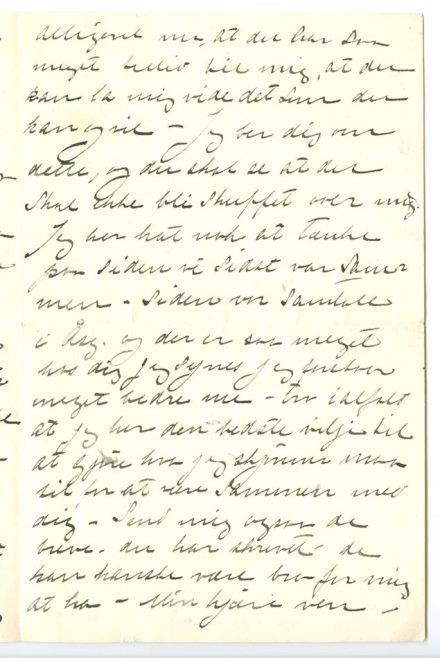 alligevel nu, at du har saa
meget tillid til mig, at du
kan la mig vide det som du
kan og vil – Jeg ber dig om
dette, og du skal se at du
skal ikke bli skuffet over mig.
Jeg har hat nok at tænke
paa siden vi sidst var sam-
men – siden vor samtale
i Åsg. og der er saa meget
hos dig jeg synes jeg forstaar
meget bedre nu – tro ialfald
at jeg har den bedste vilje til
at gjøre hva jeg skjønner maa
til for at være sammen med
dig – Send mig ogsaa de
breve du har skrevet – de
kan kanske være bra for mig
at ha – Min kjære ven –